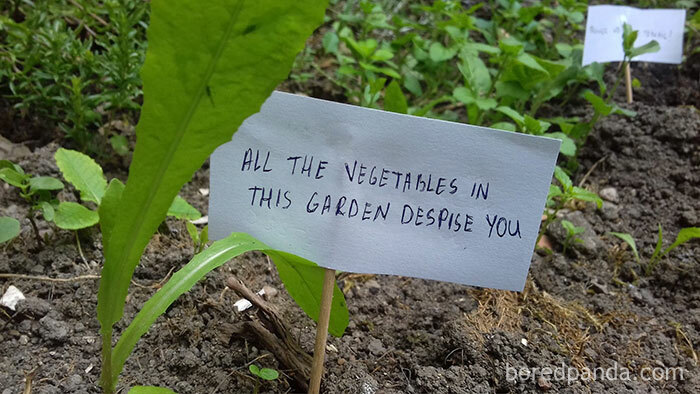 ALL THE VEGETABLES IN
THIS GARDEN DESPISE YOU
boredpanda.com